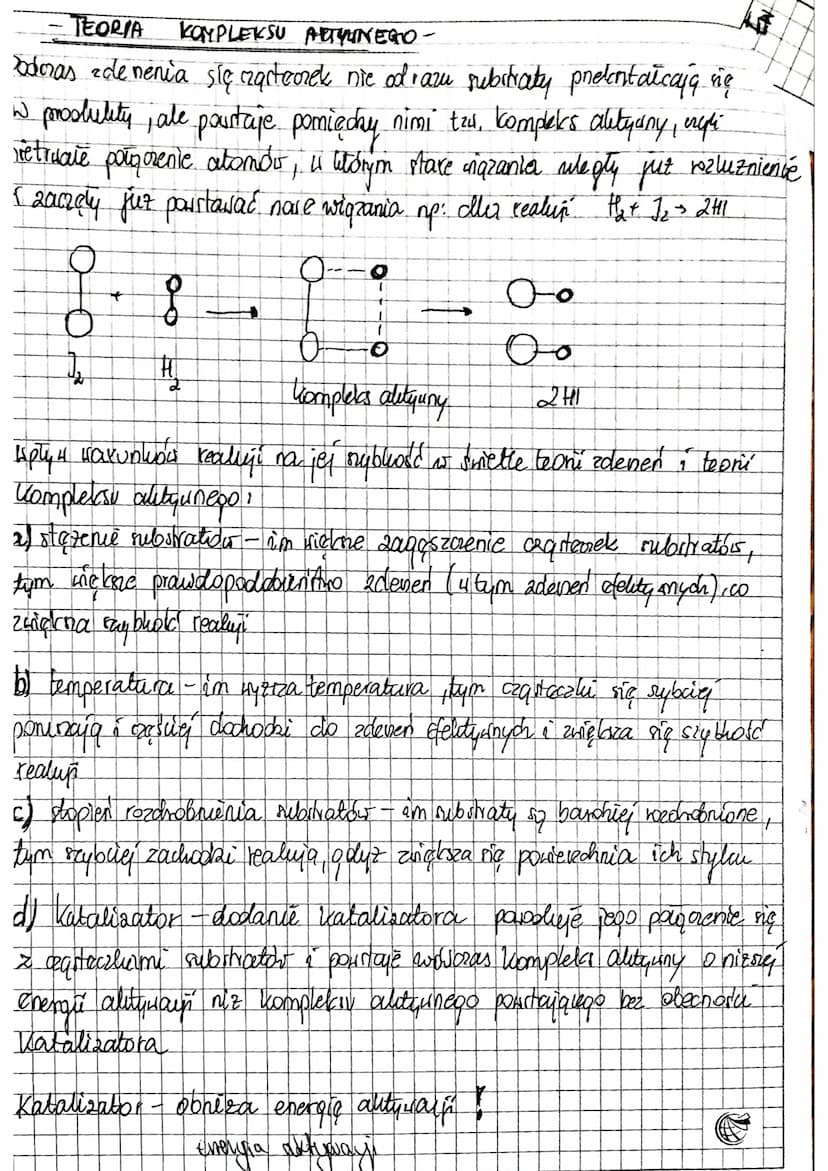 - TEORIA KOMPLEKSU AKTYWNEGO -
Podczas zderzenia się cząsteczek nie od razu substraty przekształcają się
w produkty, ale powstaje pomiędzy nimi tzw. kompleks aktywny, czyli
nietrwałe połączenie atomów, w którym stare wiązania uległy już rozluźnienie
i zaczęły już powstawać nowe wiązania np: dla reakcji H₂ + J₂ → 2HI
+ → →
J₂ H₂ kompleks aktywny 2HI
Wpływ warunków reakcji na jej szybkość w świetle teorii zderzeń i teorii
kompleksu aktywnego:
a) stężenie substratów - im większe zagęszczenie cząsteczek substratów,
tym większe prawdopodobieństwo zderzeń (w tym zderzeń efektywnych), co
zwiększa szybkość reakcji
b) temperatura - im wyższa temperatura, tym cząsteczki się szybciej
poruszają i częściej dochodzi do zderzeń efektywnych i zwiększa się szybkość
reakcji
c) stopień rozdrobnienia substratów - im substraty są bardziej rozdrobnione,
tym szybciej zachodzi reakcja, gdyż zwiększa się powierzchnia ich styku
d) Katalizator - dodanie katalizatora powoduje jego połączenie się
z cząsteczkami substratów i powstaje wówczas kompleks aktywny o niższej
energii aktywacji niż kompleksu aktywnego powstającego bez obecności
katalizatora
Katalizator - obniża energię aktywacji !
energia aktywacji